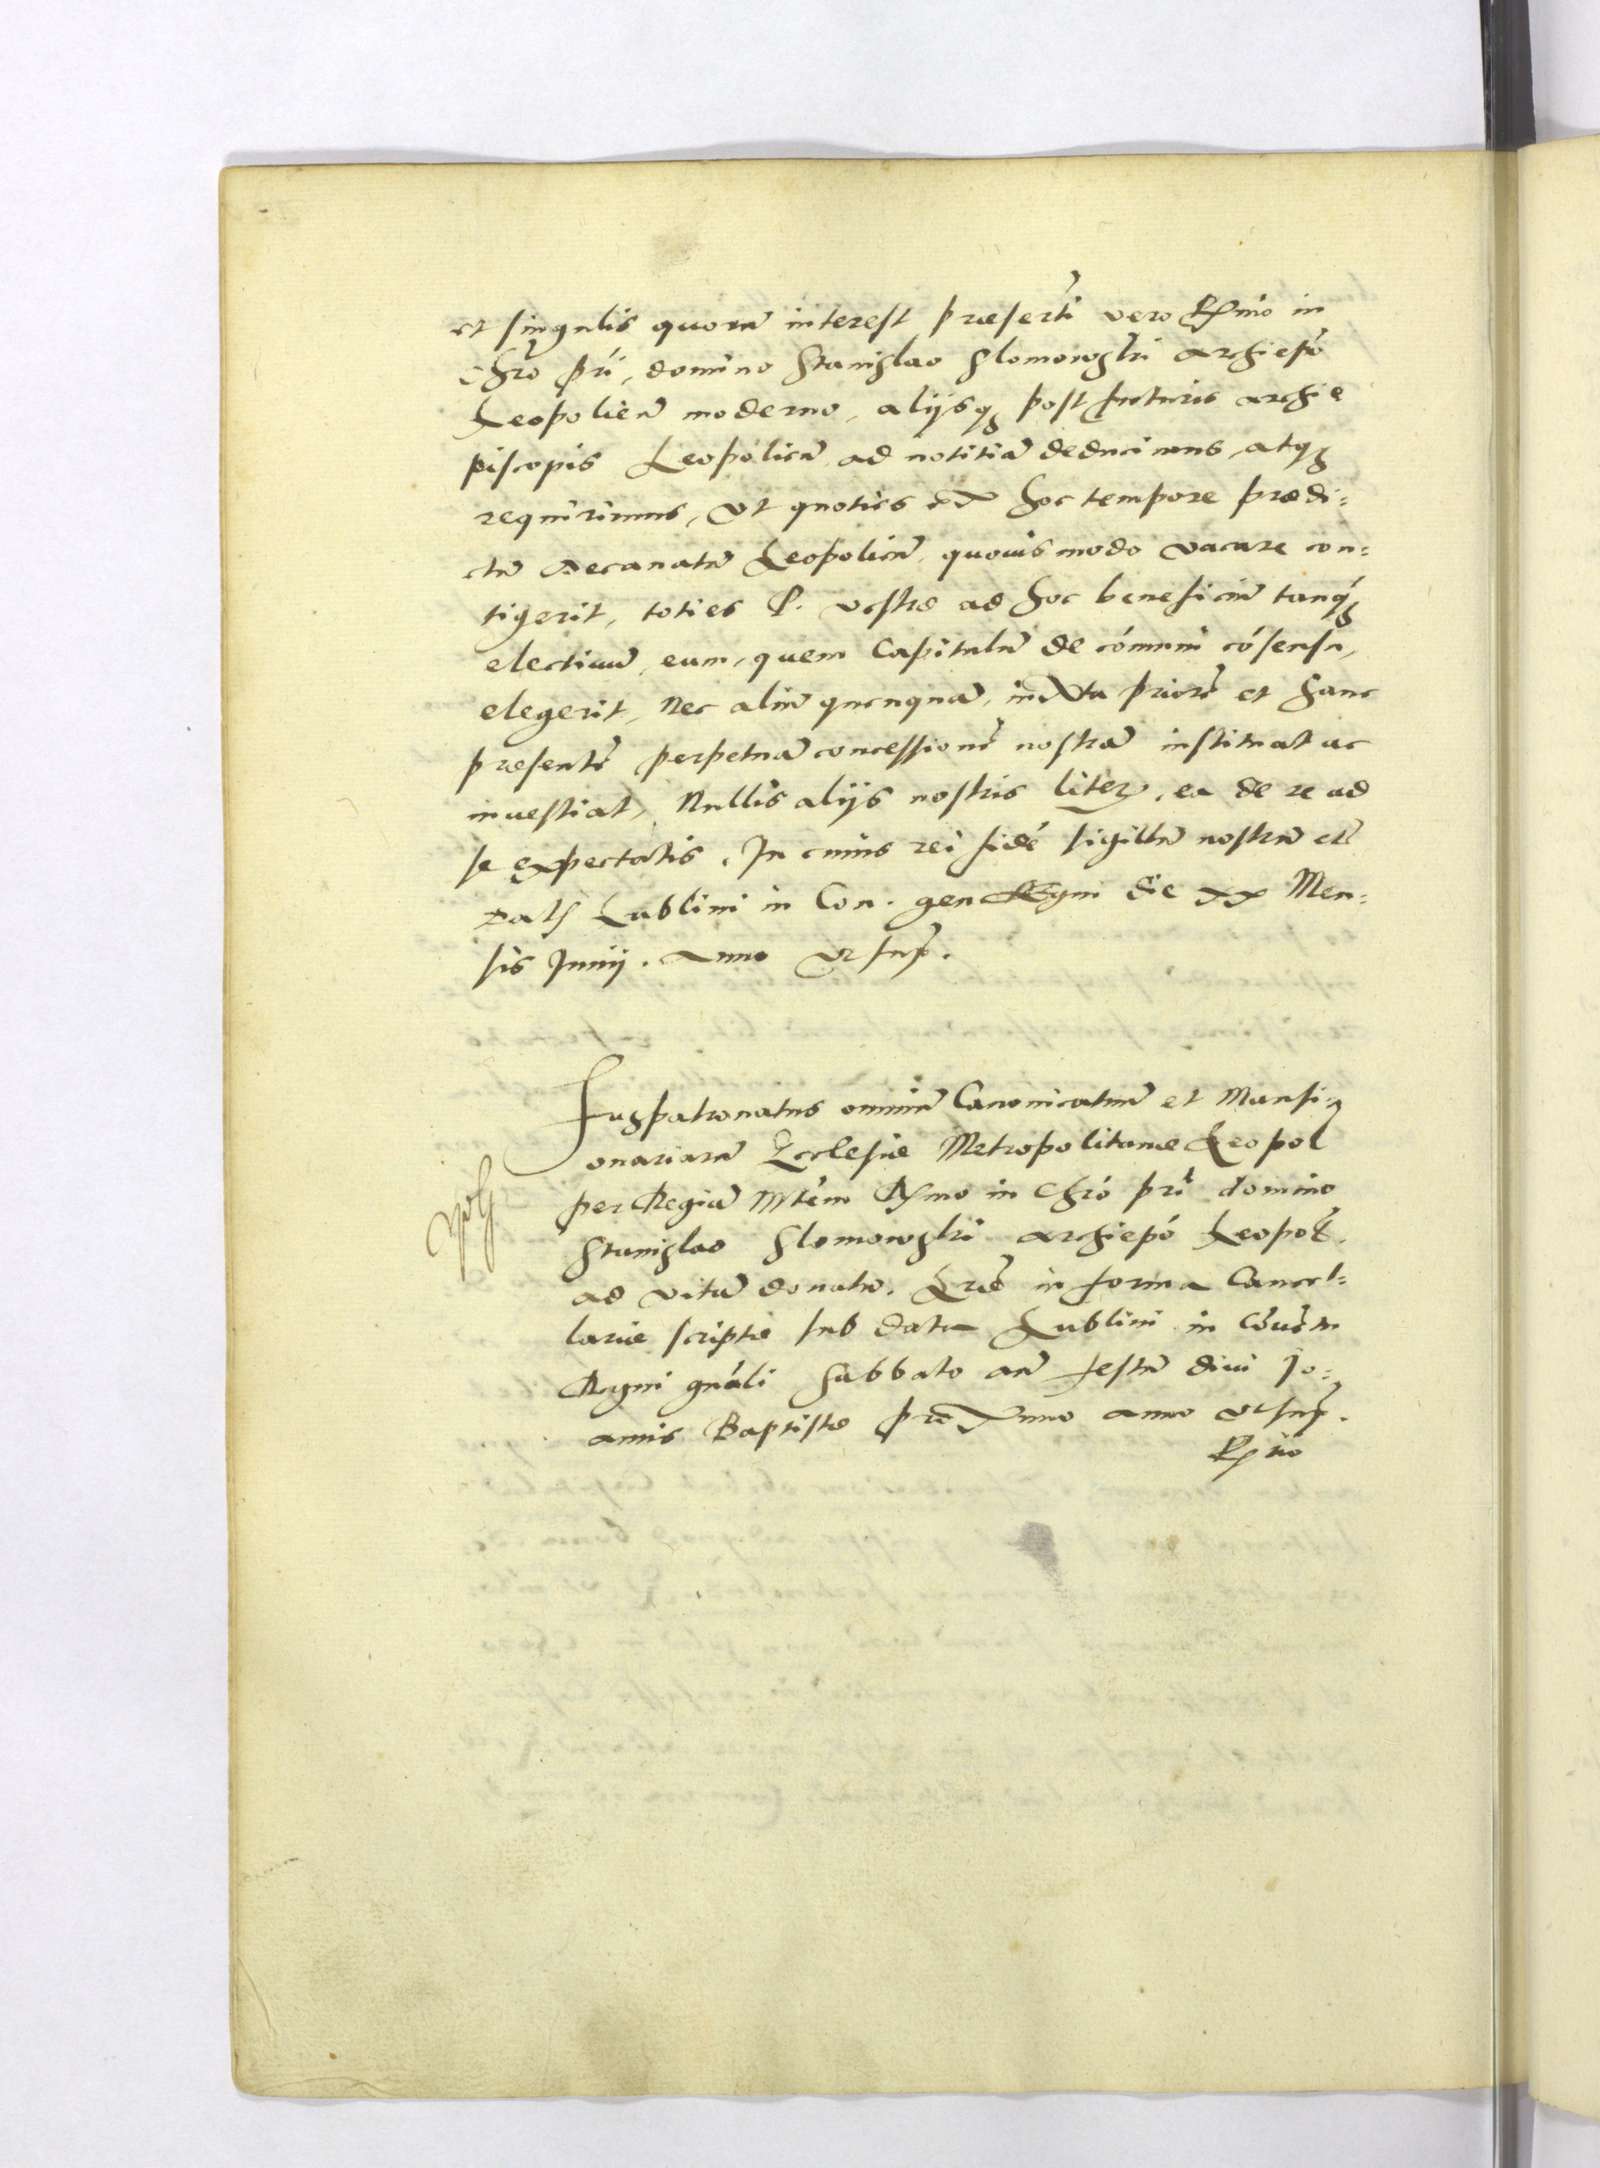 et singulis quorū interest præsertī vero Rs̃mo in
Chrō prī, domino Stanislao Slomowski archiepō
Leopolien̄ moderno, alijsq3 post futuris archie
piscopis Leopolien̄ ad notitiā deducimus, atq3
requirimus, ut quoties ex hoc tempore prædi=
ctū Decanatū Leopolien̄, quovis modo vacare con=
tigerit, toties P. vestræ ad hoc beneficiū tanq3
electivū, eum, quem Capitulū de cōmuni cōsensu,
elegerit, Nec aliū quenquā, iuxta priorē et hanc
præsentē perpetuā concessionē nostrā instituat ac
investiat, Nullis alijs nostris literꝭ, ea de re ad
se expectatis. In cuius rei fidē sigillū nostrū etc̄
Datū Lublini in Con. gen Regni die xx Men=
sis Junij. Anno ut sup̄.
Juspatronatus omniū Canonicatuū et Mansi=
onariarū Ecclesiæ Metropolitanæ Leopol
per Regiā Mtēm Rs̃mo in Chrō prī domino
Stanislao Slomowski archiepō Leopol̄.
ad vitā donatū. Lrǣ in forma Cancel=
lariæ scriptæ sub data Lublini in Cōventu
Regni gnāli Sabbato an̄ festū divi Jo=
annis Baptistæ proximo anno ut sup̄.